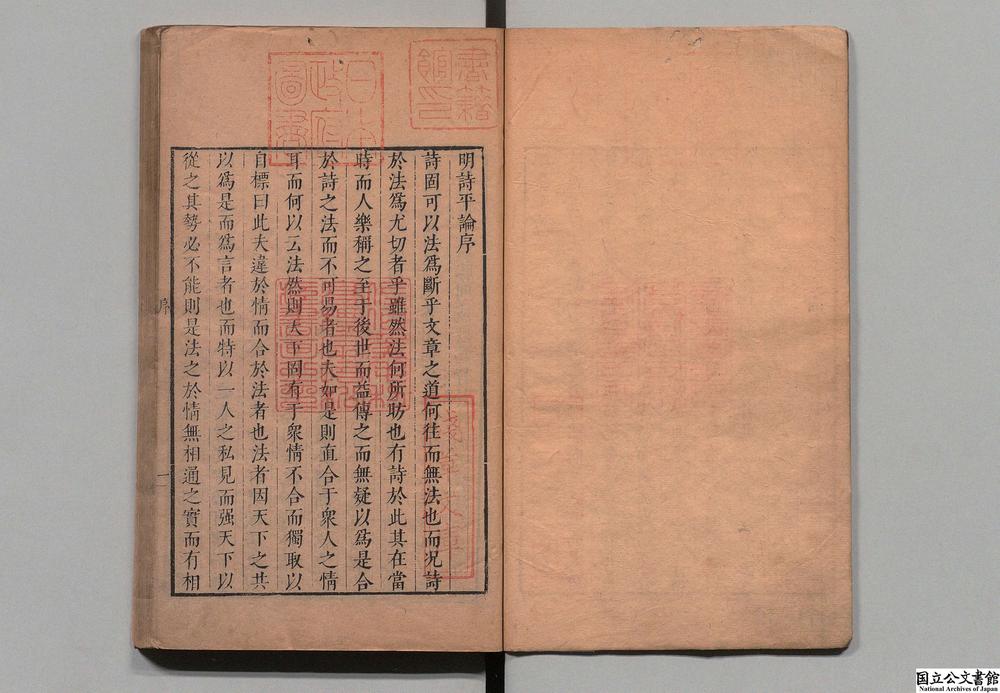 明詩平論序
詩固可以法爲斷乎文章之道何往而無法也而况詩
於法爲尤切者乎雖然法何所昉也有詩於此其在當
時而人樂稱之至于後世而益傳之而無疑以爲是合
於詩之法而不可易者也夫如是則直合于衆人之情
耳而何以云法然則天下固有于衆情不合而獨取以
自標曰此夫違於情而合於法者也法者因天下之共
以爲是而爲言者也而特以一人之私見而强天下以
從之其勢必不能則是法之於情無相通之實而有相
序
一
書籍館印
日本政府圖書
国立公文書館
National Archives of Japan